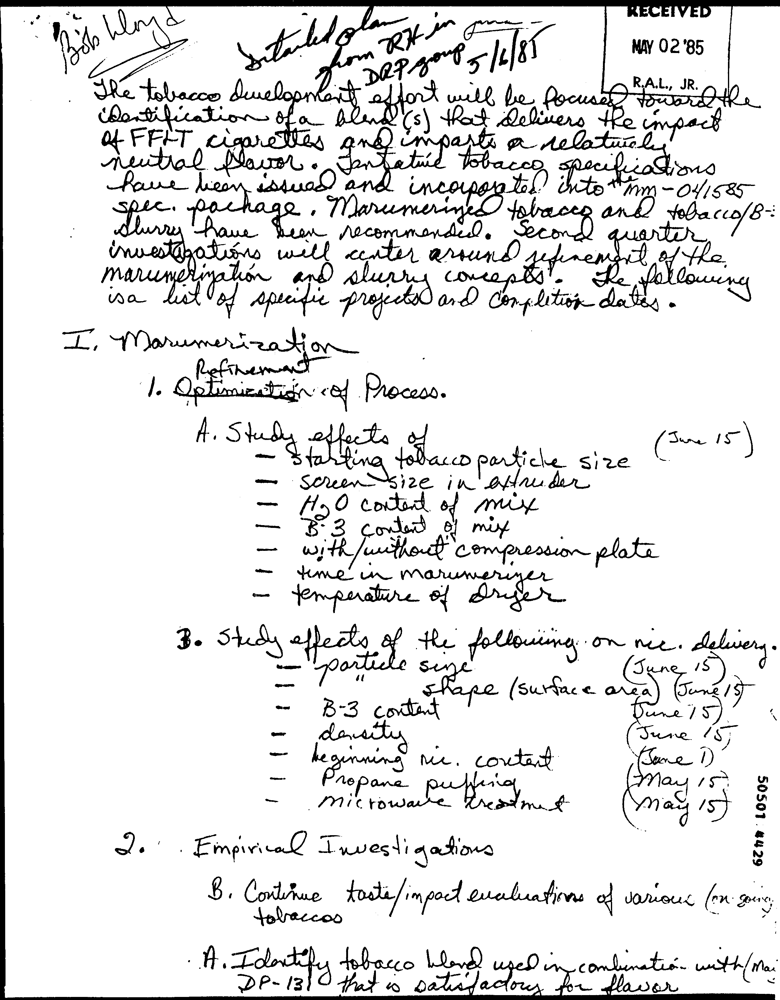 Bob Lloyd
Detailed plan
from RH in
DRP group 5/6/85
RECEIVED
MAY 02 '85
R.A.L., JR.
The tobacco development effort will be focused toward the
identification of a blend(s) that delivers the impact
of FFLT cigarettes and imparts a relatively
neutral flavor. Tentative tobacco specifications
have been issued and incorporated into the mm-041585
spec. package. Marumerized tobacco and tobacco/B-
slurry have been recommended. Second quarter
investigations will center around refinement of the
marumerization and slurry concepts. The following
is a list of specific projects and completion dates.
I. Marumerization
Refinement
1. Optimization of Process.
A. Study effects of (June 15)
- starting tobacco particle size
- screen size in extruder
- H2O content of mix
- B-3 content of mix
- with/without compression plate
- time in marumerizer
- temperature of dryer
B. Study effects of the following on nic. delivery.
- particle size (June 15)
- " shape (surface area) (June 15)
- B-3 content (June 15)
- density (June 15)
- beginning nic. content (June 1)
- Propane puffing (May 15)
- microwave treatment (May 15)
2. Empirical Investigations
B. Continue taste/impact evaluations of various (on-going
tobaccos
A. Identify tobacco blend used in combination with (Ma
DP-131 that is satisfactory for flavor
50501 4429